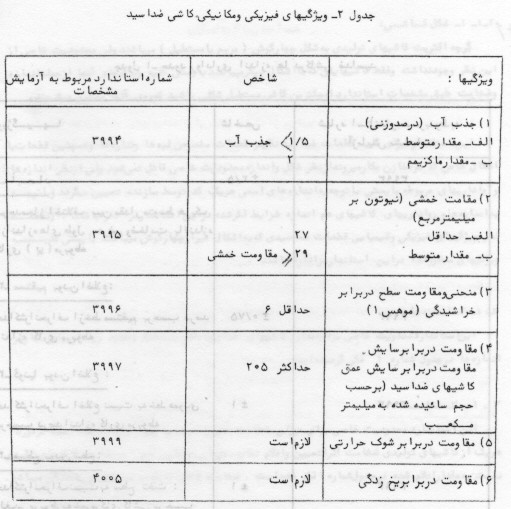 جدول ۲ـ ویژگیهای فیزیکی ومکانیکی کاشی ضداسید
ویژگیها :
شاخص
شماره استاندارد مربوط به آزمایش مشخصات
۱) جذب آب (درصدوزنی)
الف ـ مقدار متوسط
ب ـ مقدار ماکزیم
جذب آب > ۱/۵
۲
۳۹۹۴
۲) مقامت خمشی (نیوتون بر
میلیمترمربع)
الف ـ حداقل
ب ـ مقدار متوسط
۲۷
مقاومت خمشی ⩾ ۲۹
۳۹۹۵
۳) منحنی ومقاومت سطح دربرابر
خراشیدگی (موهس ۱)
حداقل ۶
۳۹۹۶
۴) مقاومت دربرابرسایش
مقاومت دربرابر سایش عمق
کاشیهای ضداسید (برحسب
حجم سائیده شده به میلیمتر
مکعب
حداکثر ۲۰۵
۳۹۹۷
۵) مقاومت دربرابر شوک حرارتی
لازم است
۳۹۹۹
۶) مقاومت دربرابر یخ زدگی
لازم است
۴۰۰۵